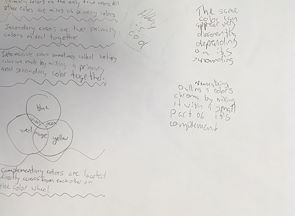 colors are the only true
other colors are mixes of primary colors
Secondary colors are two primary
colors mixed together.
Intermediate color sometimes called tertiary
colors are made by mixing a primary
and secondary color together.
blue
red
yellow
Complementary colors are located
directly across from each other on
the color wheel
The same
color can
appear
differently
depending
on it's
surrounding
Dulling a colors
chroma by mixing
it with a small
part of it's
complement